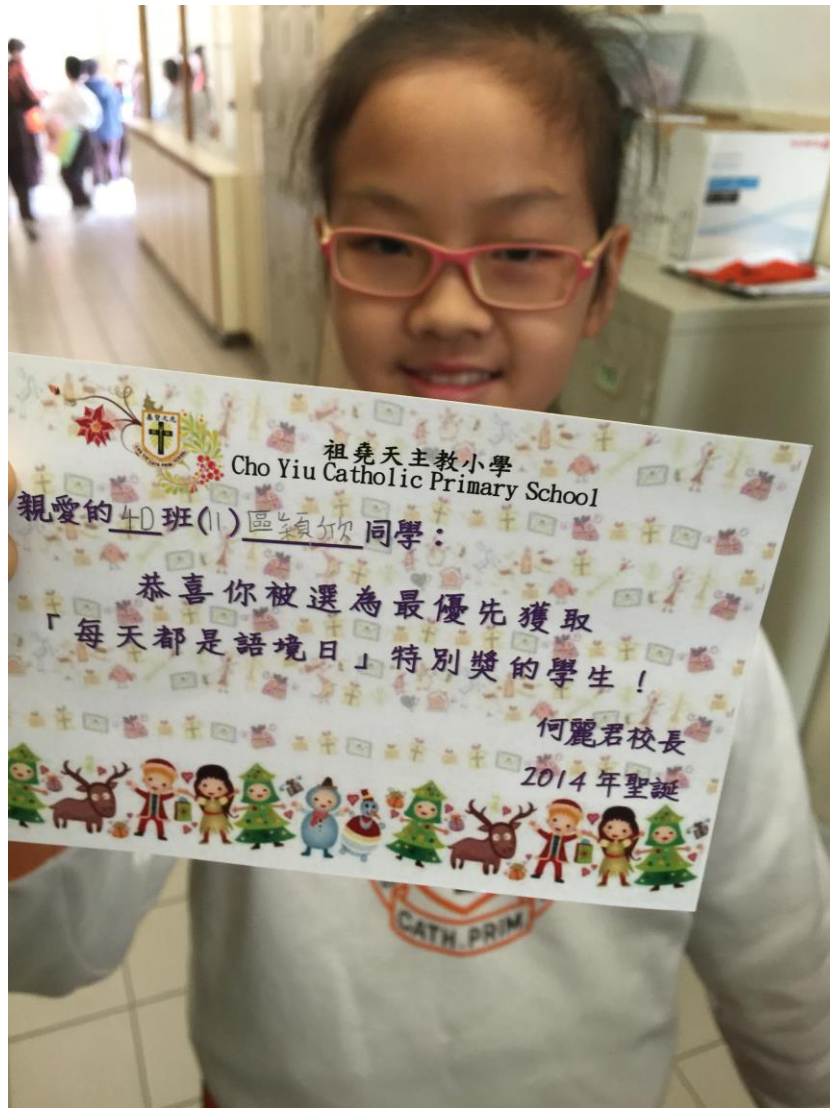 祖堯天主教小學
Cho Yiu Catholic Primary School
親愛的4D班(11)區穎欣同學：
恭喜你被選為最優先獲取
「每天都是語境日」特別獎的學生！
何麗君校長
2014年聖誕
CATH. PRIM